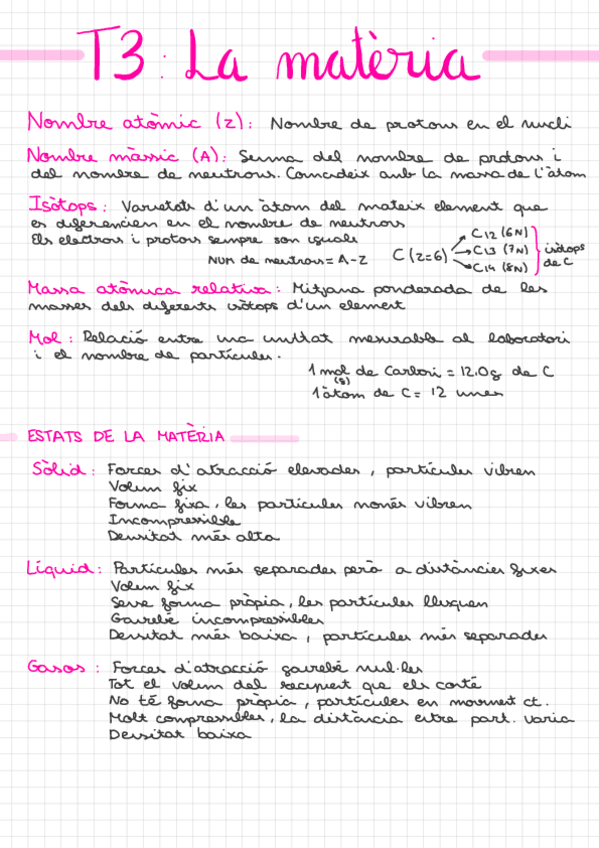 T3: La matèria
Nombre atòmic (Z): Nombre de protons en el nucli
Nombre màssic (A): Suma del nombre de protons i
del nombre de neutrons. Coincideix amb la massa de l'àtom
Isòtops: Varietats d'un àtom del mateix element que
es diferencien en el nombre de neutrons
Els electrons i protons sempre son iguals
Num de neutrons = A-Z
C (Z=6)
C12 (6N)
C13 (7N)
C14 (8N)
isòtops
de C
Massa atòmica relativa: Mitjana ponderada de les
masses dels diferents isòtops d'un element
Mol: Relació entre una unitat mesurable al laboratori
i el nombre de partícules.
1 mol de Carboni = 12.0g de C
(g)
1 àtom de C = 12 umes
ESTATS DE LA MATÈRIA
Sòlid: Forces d'atracció elevades, partícules vibren
Volum fix
Forma fixa, les partícules només vibren
Incompressible
Densitat més alta
Líquid: Partícules més separades però a distàncies fixes
Volum fix
Sense forma pròpia, les partícules llisquen
Gairebé incompressibles
Densitat més baixa, partícules més separades
Gasos: Forces d'atracció gairebé nul·les
Tot el volum del recipient que els conté
No té forma pròpia, partícules en moviment ct.
Molt compressibles, la distància entre part. varia
Densitat baixa